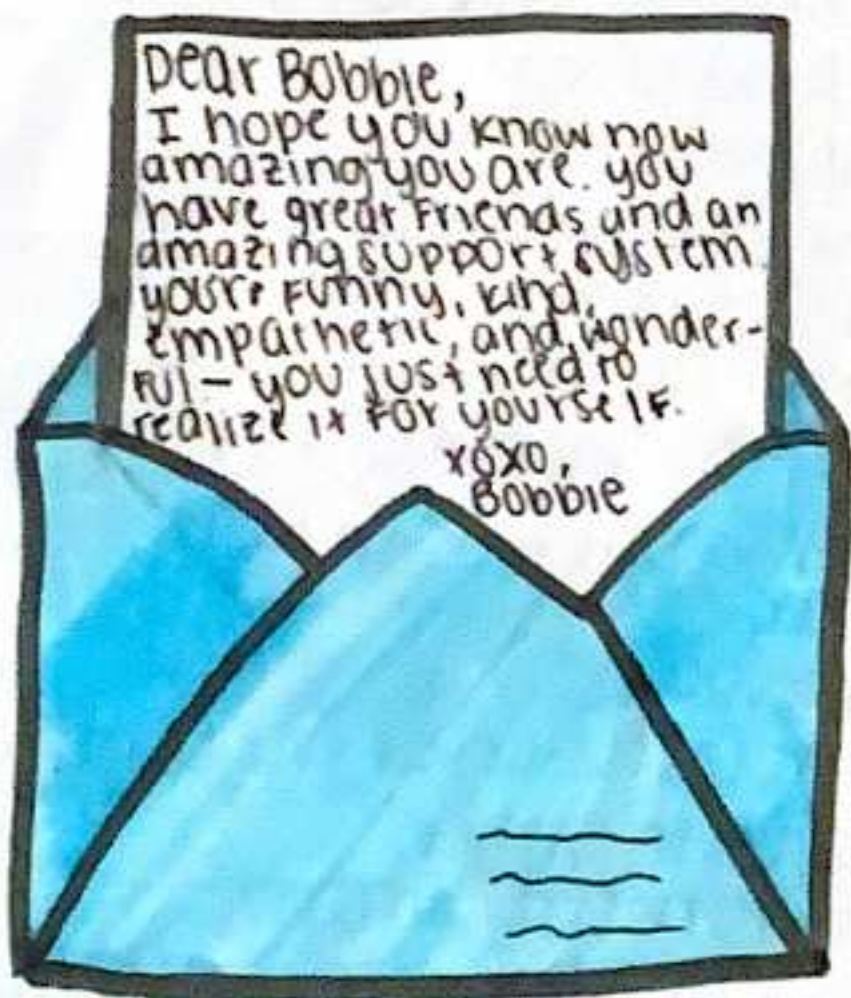 Dear Bobbie,
I hope you know how
amazing you are. you
have great friends and an
amazing support system.
you're funny, kind,
empathetic, and wonder-
ful – you just need to
realize it for yourself.
xoxo,
Bobbie